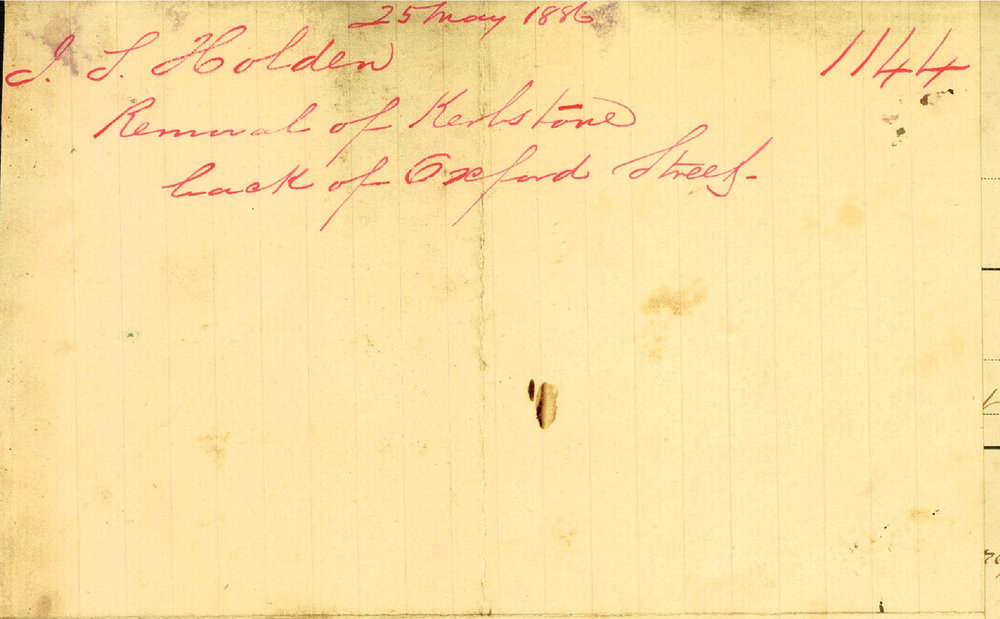 25 May 1886
J. S. Holden 1144
Removal of Kerbstone
back of Oxford Street